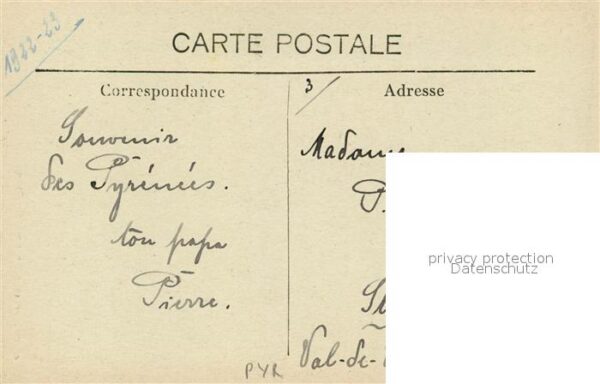 1922-23
CARTE POSTALE
Correspondance
3/
Adresse
Souvenir
des Pyrénées.
ton papa
Pierre.
Madame
P.
privacy protection
Datenschutz
Val-de-
PYR